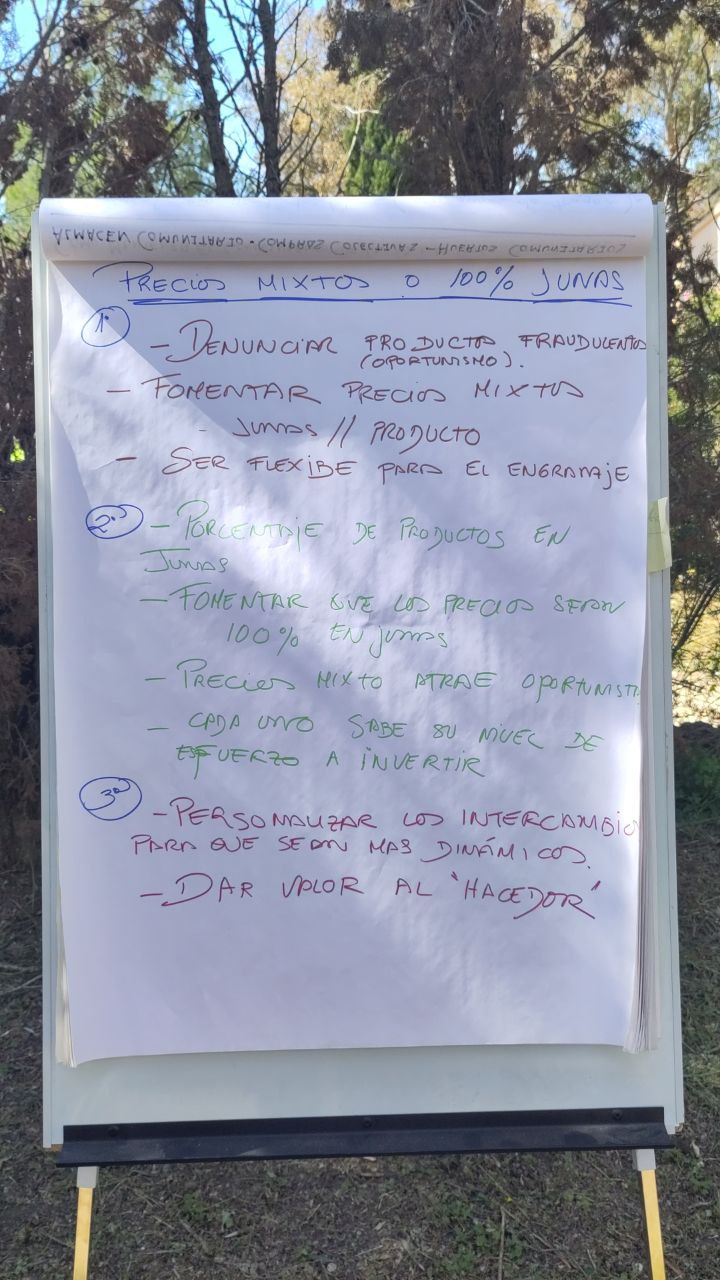 ALMACEN COMUNITARIO - COMPRAS COLECTIVAS - HUERTOS COMUNITARIOS
PRECIOS MIXTOS O 100% JUNAS
1º
- DENUNCIAR PRODUCTOS FRAUDULENTOS
(OPORTUNISMO).
- FOMENTAR PRECIOS MIXTOS
- JUNAS // PRODUCTO
- SER FLEXIBE PARA EL ENGRANAJE
2º
- PORCENTAJE DE PRODUCTOS EN
JUNAS
- FOMENTAR QUE LOS PRECIOS SEAN
100% EN JUNAS
- PRECIOS MIXTO ATRAE OPORTUNIST
- CADA UNO SABE SU NIVEL DE
ESFUERZO A INVERTIR
3º
- PERSONALIZAR LOS INTERCAMBIO
PARA QUE SEAN MAS DINÁMICOS.
- DAR VALOR AL "HACEDOR"